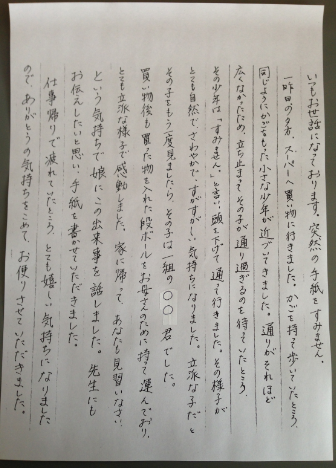 いつもお世話になっております。突然の手紙をすみません。
一昨日の夕方、スーパーへ買物に行きました。かごを持って歩いていたところ、
同じようにかごをもった小さな少年が近づいてきました。通りがそれほど
広くなかったため、立ち止まってその子が通り過ぎるのを待っていたところ、
その少年は「すみません」と言い、頭を下げて通って行きました。その様子が
とても自然で、さわやかで、すがすがしい気持ちになりました。立派な子だと
その子をもう一度見ましたら、その子は一組の〇〇君でした。
買い物後も買った物を入れた段ボールをお母さんのために持って運んでおり、
とても立派な様子で感動しました。家に帰って、あなたも見習いなさい、
という気持ちで娘にこの出来事を話しました。先生にも
お伝えしたいと思い、手紙を書かせていただきました。
仕事帰りで疲れていたところ、とても嬉しい気持ちになりました
ので、ありがとうの気持ちをこめて、お便りさせていただきました。